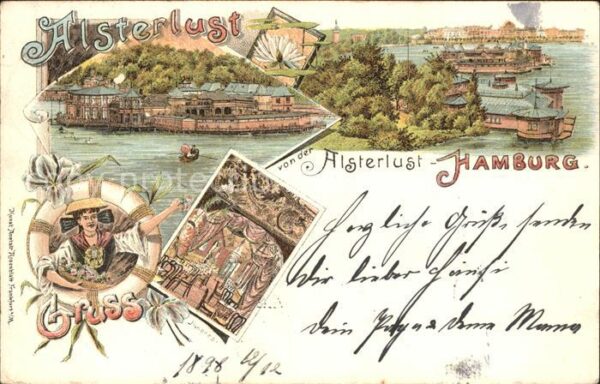 Alsterlust
von der Alsterlust - HAMBURG.
Gruss
Herzliche Grüße senden
Dir lieber Hansi
Dein Papa & deine Mama
1898